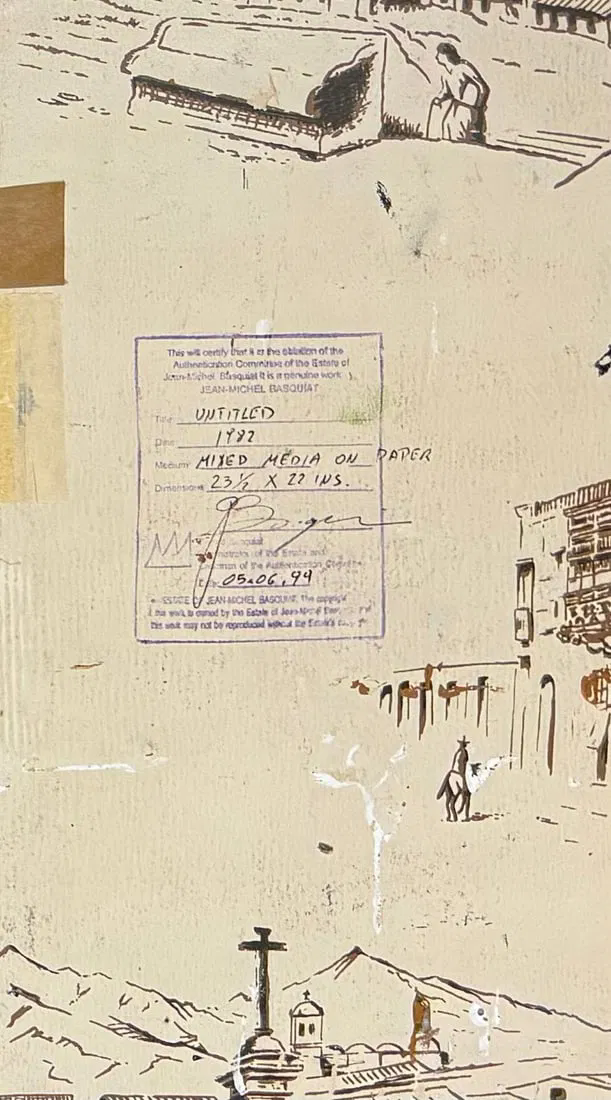 This will certify that it is the opinion of the
Authentication Committee of the Estate of
Jean-Michel Basquiat it is a genuine work
JEAN-MICHEL BASQUIAT
Title UNTITLED
Date 1982
Medium MIXED MEDIA ON PAPER
Dimensions 23½ X 22 INS.
Basquiat
of the Estate and
of the Authentication
05.06.99
ESTATE OF JEAN-MICHEL BASQUIAT. The copyright
this work is owned by the Estate of Jean-Michel
this work may not be reproduced without the Estate's